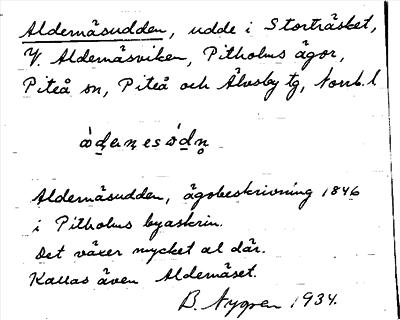 Aldernäsudden, udde i Storträsket,
V. Aldernäsviken, Pitholms ägor,
Piteå sn, Piteå och Älvsby tg, Norrb. l
Aldernäsudden, ägobeskrivning 1846
i Pitholms byaskrin.
Det växer mycket al där.
Kallas även Aldernäset.
B. Nygren 1934.